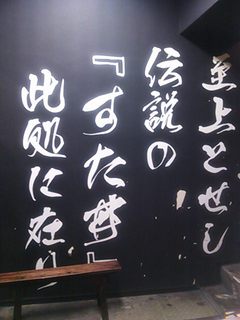 至上とせし
伝説の
『すた丼』
此処に在り